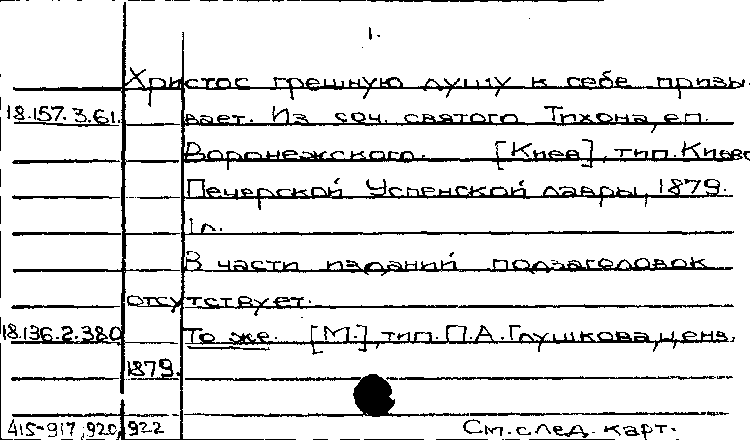 1.
Христос грешную душу к себе призы-
18.157.3.61. вает. Из соч. святого Тихона, еп.
Воронежского. [Киев], тип. Киево
Печерской Успенской лавры, 1879.
1 л.
В части изданий подзаголовок
отсутствует.
18.136.2.380 То же. [М.], тип. П.А. Глушкова, ценз.
1879.
415-917, 920, 922 См. след. карт.